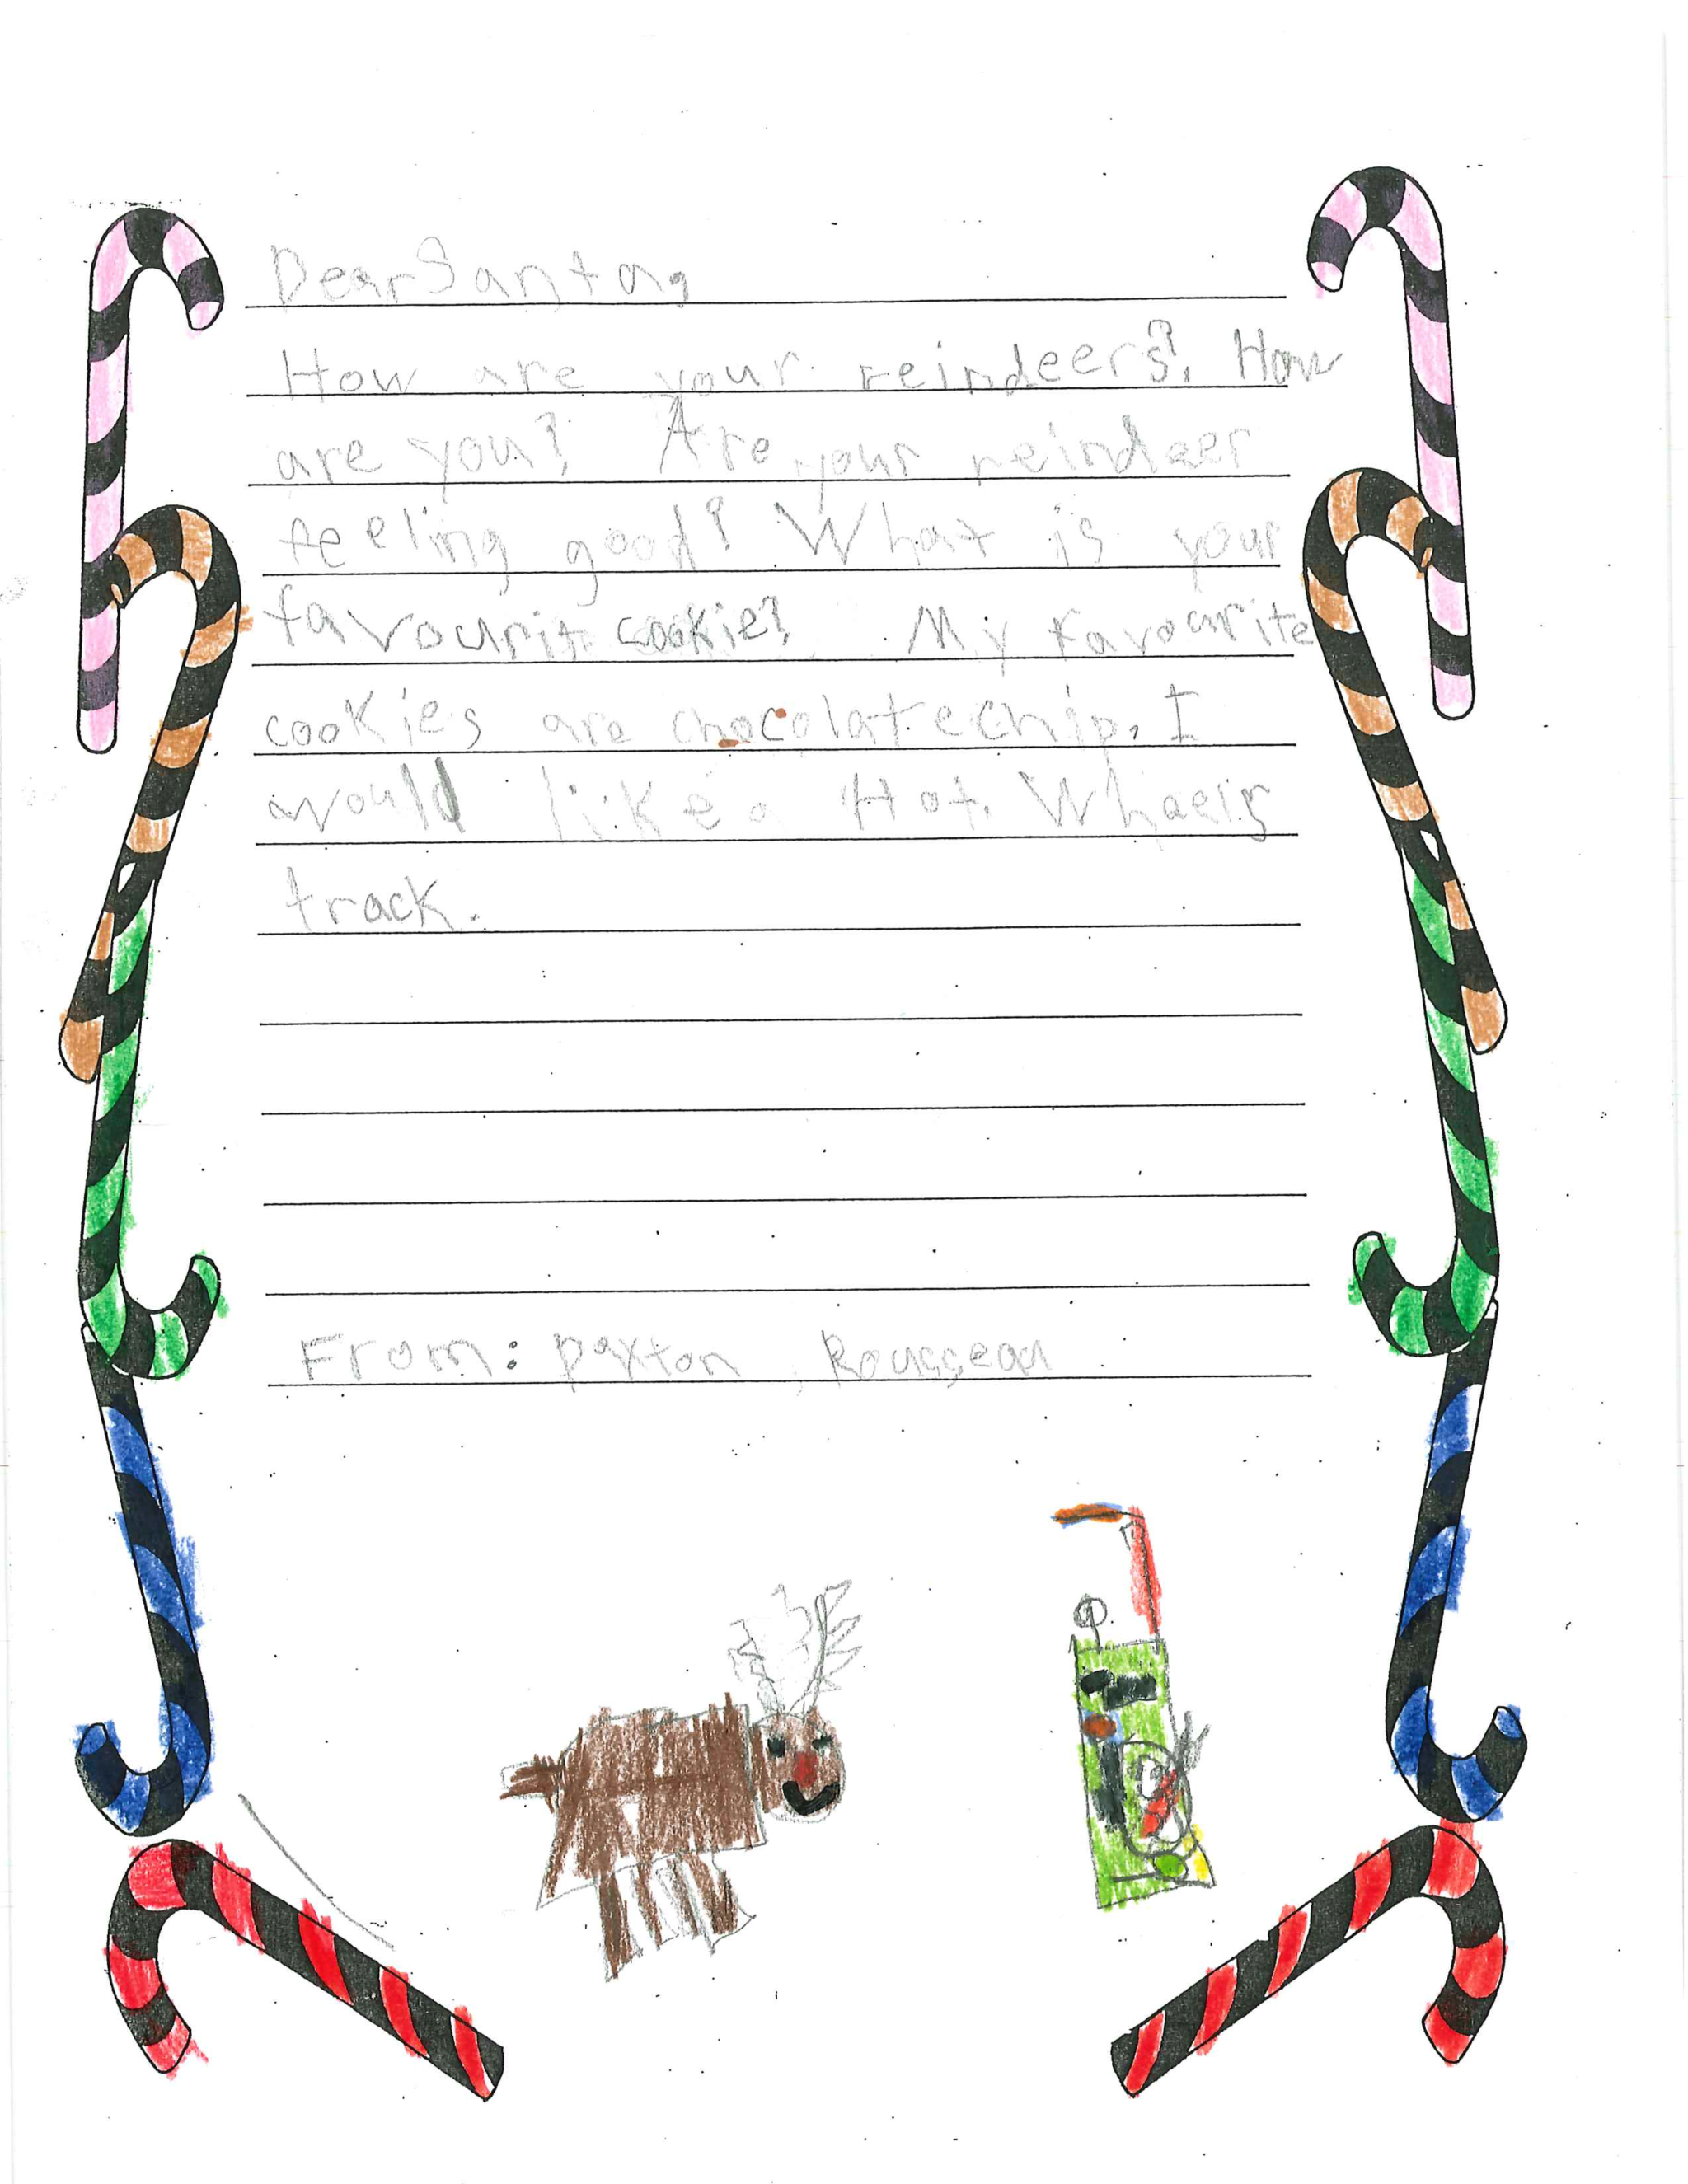 Dear Santa,
How are your reindeers? How
are you? Are your reindeer
feeling good? What is your
favourit cookie? My favourite
cookies are chocolate chip. I
would like a Hot Wheels
track.
From: Paxton Rousseau